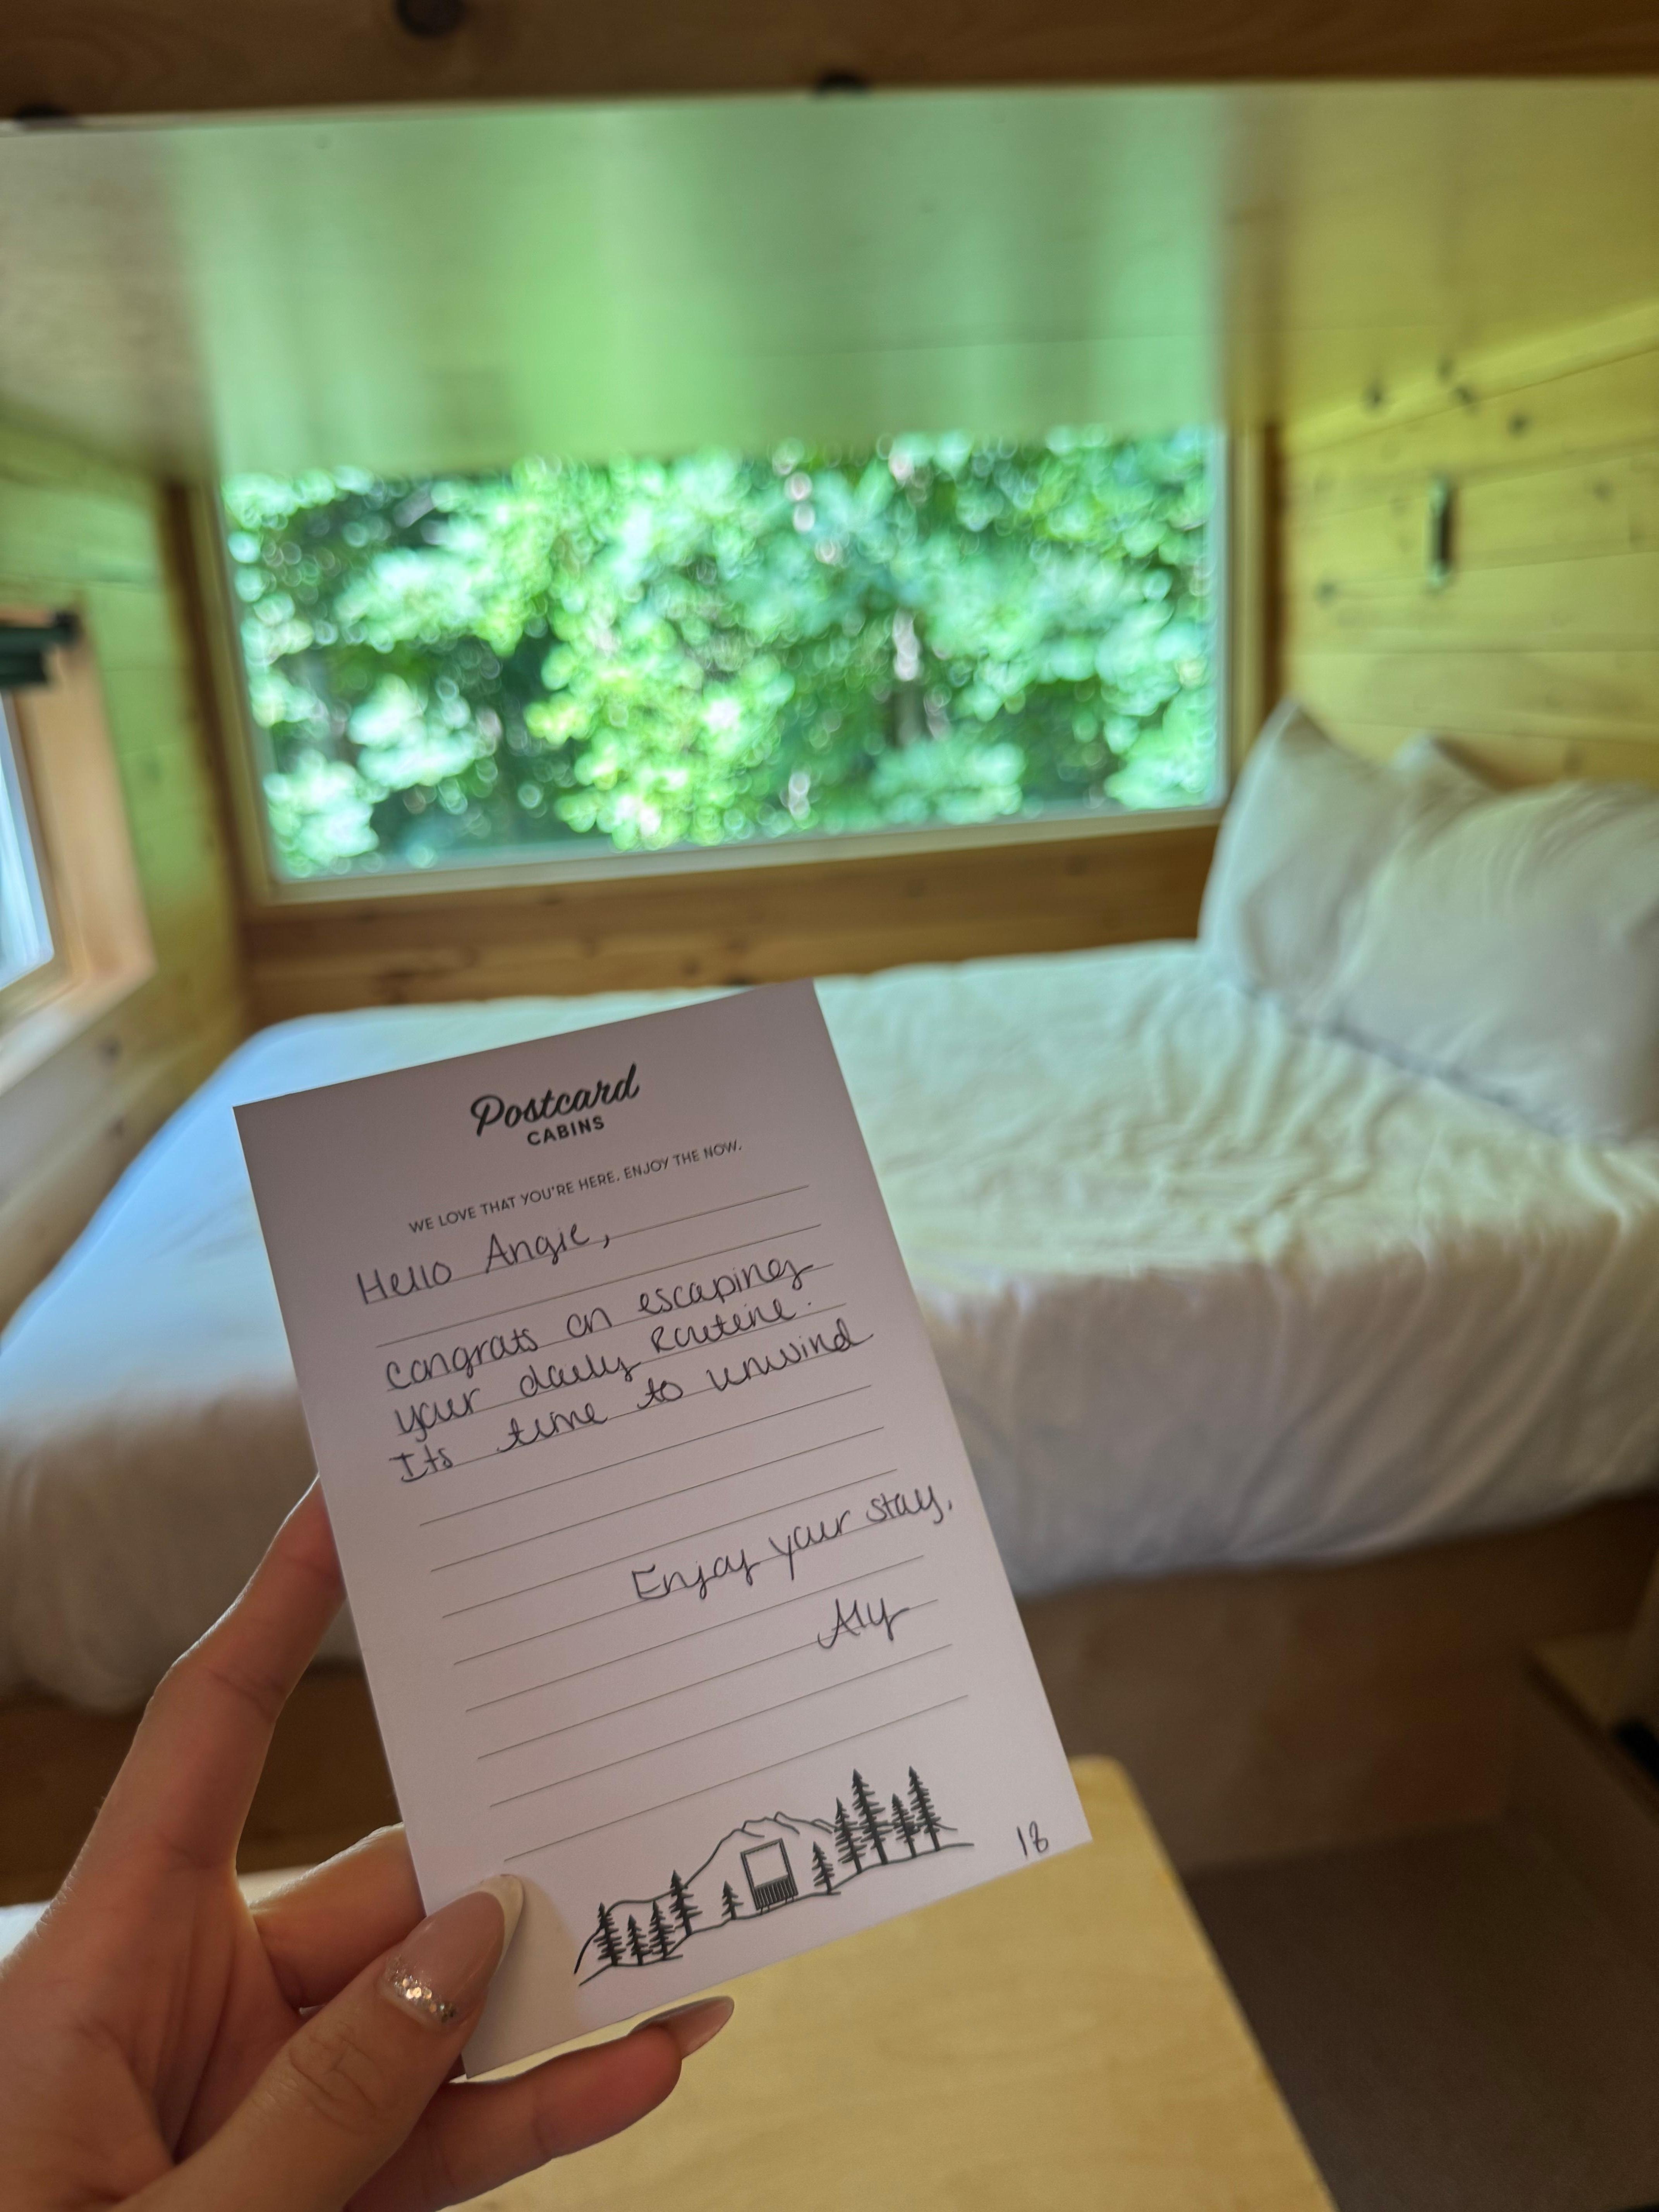 Postcard
CABINS
WE LOVE THAT YOU'RE HERE. ENJOY THE NOW.
Hello Angie,
congrats on escaping
your daily Routine.
Its time to unwind
Enjoy your stay,
Aly
18